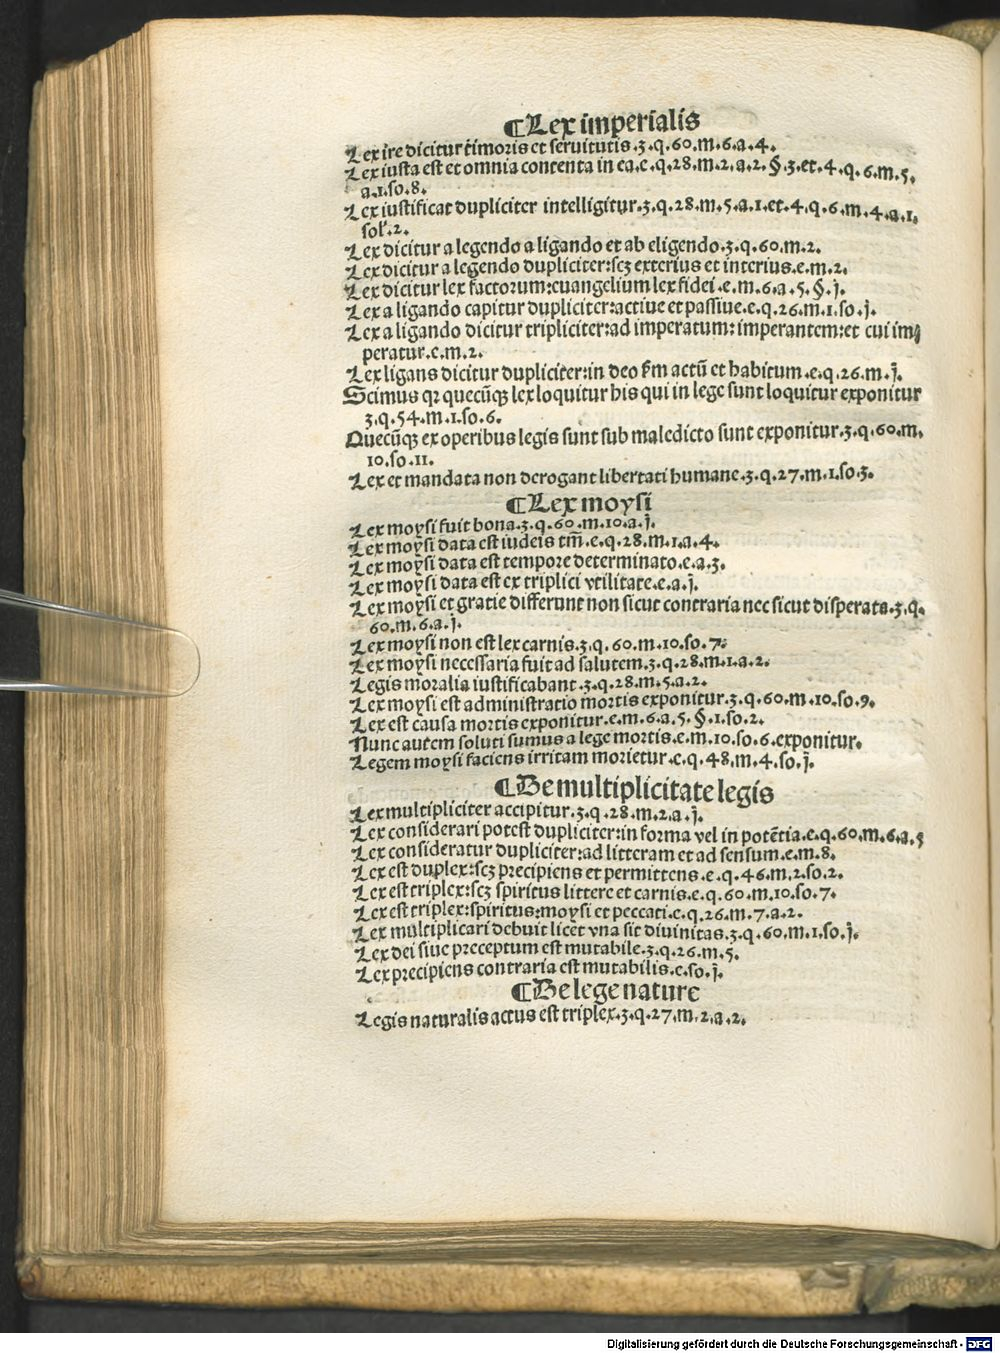 ¶Lex imperialis
Lex ire dicitur timoris et seruitutis.3.q.60.m.6.a.4.
Lex iusta est et omnia contenta in ea.e.q.28.m.2.a.2.§.3.et.4.q.6.m.5.
a.1.so.8.
Lex iustificat dupliciter intelligitur.3.q.28.m.5.a.1.et.4.q.6.m.4.a.1.
sol'.2.
Lex dicitur a legendo a ligando et ab eligendo.3.q.60.m.2.
Lex dicitur a legendo dupliciter:scꝫ exterius et interius.e.m.2.
Lex dicitur lex factorum:euangelium lex fidei.e.m.6.a.5.§.j.
Lex a ligando capitur dupliciter:actiue et passiue.e.q.26.m.1.so.j.
Lex a ligando dicitur tripliciter:ad imperatum: imperantem:et cui im⸗
peratur.e.m.2.
Lex ligans dicitur dupliciter:in deo km actū et habitum.e.q.26.m.j.
Scimus qr quecūqꝫ lex loquitur his qui in lege sunt loquitur exponitur
3.q.54.m.1.so.6.
Quecūqꝫ ex operibus legis sunt sub maledicto sunt exponitur.3.q.60.m.
10.so.11.
Lex et mandata non derogant libertati humane.3.q.27.m.1.so.3.
¶Lex moysi
Lex moysi fuit bona.3.q.60.m.10.a.j.
Lex moysi data est iudeis tm̄.e.q.28.m.1.a.4.
Lex moysi data est tempore determinato.e.a.3.
Lex moysi data est ex triplici vtilitate.e.a.j.
Lex moysi et gratie differunt non sicut contraria nec sicut disperata.3.q.
60.m.6.a.j.
Lex moysi non est lex carnis.3.q.60.m.10.so.7.
Lex moysi necessaria fuit ad salutem.3.q.28.m.1.a.2.
Legis moralia iustificabant.3.q.28.m.5.a.2.
Lex moysi est administratio mortis exponitur.3.q.60.m.10.so.9.
Lex est causa mortis exponitur.e.m.6.a.5.§.1.so.2.
Nunc autem soluti sumus a lege mortis.e.m.10.so.6.exponitur.
Legem moysi faciens irritam morietur.e.q.48.m.4.so.j.
¶De multiplicitate legis
Lex multipliciter accipitur.3.q.28.m.2.a.j.
Lex considerari potest dupliciter:in forma vel in potētia.e.q.60.m.6.a.5
Lex consideratur dupliciter:ad litteram et ad sensum.e.m.8.
Lex est duplex:scꝫ precipiens et permittens.e.q.46.m.2.so.2.
Lex est triplex:scꝫ spiritus littere et carnis.e.q.60.m.10.so.7.
Lex est triplex:spiritus:moysi et peccati.e.q.26.m.7.a.2.
Lex multiplicari debuit licet vna sit diuinitas.3.q.60.m.1.so.j.
Lex dei siue preceptum est mutabile.3.q.26.m.5.
Lex precipiens contraria est mutabilis.e.so.j.
¶De lege nature
Legis naturalis actus est triplex.3.q.27.m.2.a.2.
Digitalisierung gefördert durch die Deutsche Forschungsgemeinschaft - DFG